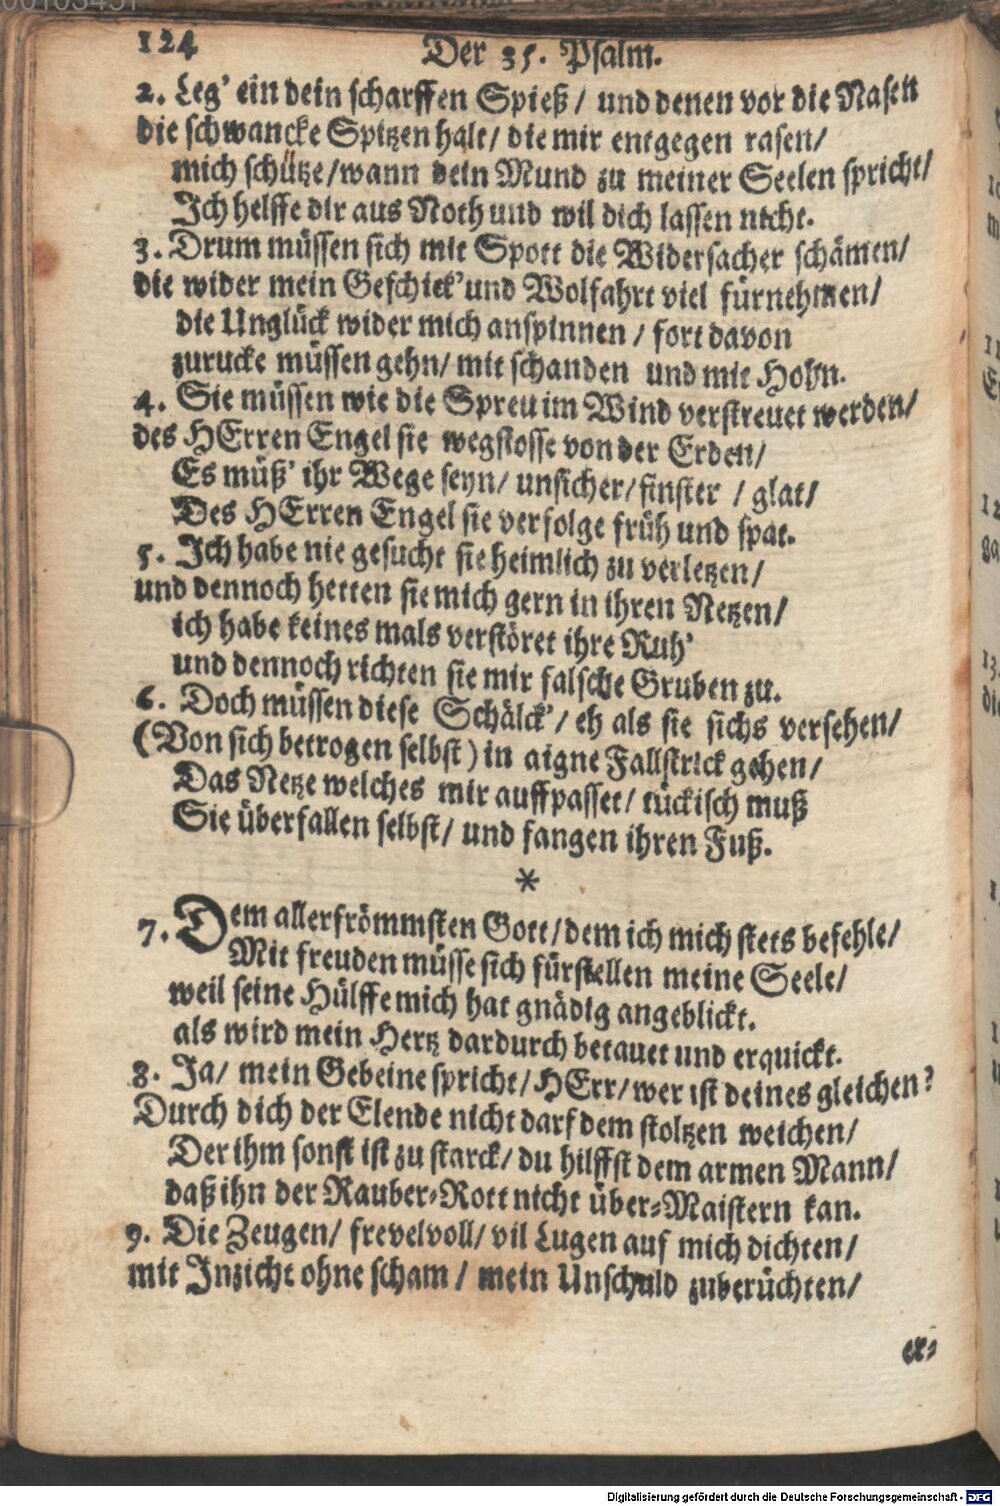 124
Der 35. Psalm.
2. Leg' ein dein scharffen Spieß / und denen vor die Nasen
die schwancke Spitzen halt / die mir entgegen rasen /
mich schütze / wann dein Mund zu meiner Seelen spricht /
Ich helffe dir aus Noth und wil dich lassen nicht.
3. Drum müssen sich mit Spott die Widersacher schämen /
die wider mein Geschick' und Wolfahrt viel fürnehmen /
die Unglück wider mich anspinnen / fort davon
zurucke müssen gehn / mit schanden und mit Hohn.
4. Sie müssen wie die Spreu im Wind verstreuet werden /
des HErren Engel sie wegstosse von der Erden /
Es müß' ihr Wege seyn / unsicher / finster / glat /
Des HErren Engel sie verfolge früh und spat.
5. Ich habe nie gesucht sie heimlich zu verletzen /
und dennoch hetten sie mich gern in ihren Netzen /
ich habe keines mals verstöret ihre Ruh'
und dennoch richten sie mir falsche Gruben zu.
6. Doch müssen diese Schälck' / eh als sie sichs versehen /
(Von sich betrogen selbst) in aigne Fallstrick gehen /
Das Netze welches mir auffpasset / tückisch muß
Sie überfallen selbst / und fangen ihren Fuß.
*
7. Dem allerfrömmsten Gott / dem ich mich stets befehle /
Mit freuden müsse sich fürstellen meine Seele /
weil seine Hülffe mich hat gnädig angeblickt.
als wird mein Hertz dardurch betauet und erquickt.
8. Ja / mein Gebeine spricht / HErr / wer ist deines gleichen?
Durch dich der Elende nicht darf dem stoltzen weichen /
Der ihm sonst ist zu starck / du hilffst dem armen Mann /
daß ihn der Rauber-Rott nicht über-Maistern kan.
9. Die Zeugen / frevelvoll / vil Lugen auf mich dichten /
mit Inzicht ohne scham / mein Unschuld zuberüchten /
er-
Digitalisierung gefördert durch die Deutsche Forschungsgemeinschaft - DFG